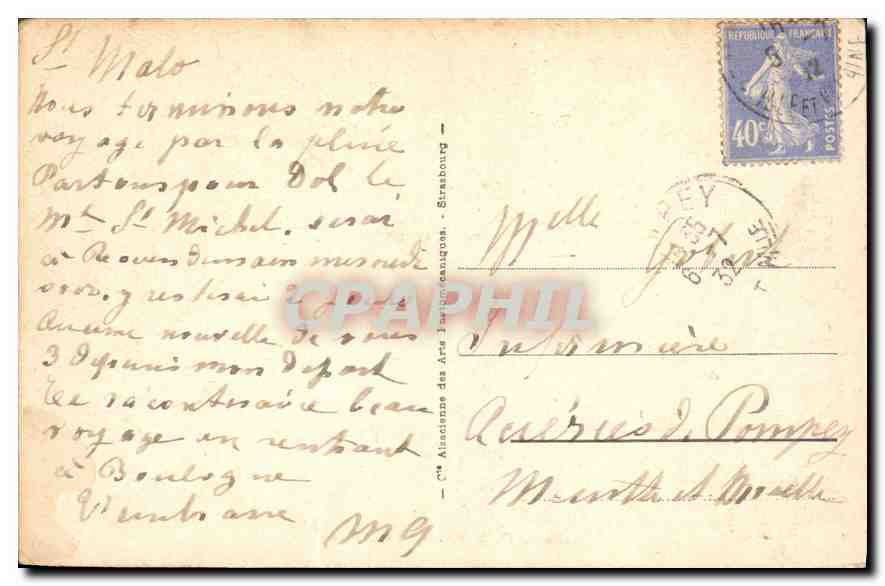 St Malo
Nous terminons notre
voyage par la pluie
Partons pour Dol le
Mt St Michel. serai
à Rouen demain mercredi
y resterai 2 jours
Aucune nouvelle de vous
3 depuis mon départ
Te raconterai ce beau
voyage en rentrant
à Boulogne
T'embrasse
MG
— Cie Alsacienne des Arts Photomécaniques. - Strasbourg —
RÉPUBLIQUE FRANÇAISE
40c
POSTES
PEY
6 32
Mlle
Infirmière
Aciéries de Pompey
Meurthe et Moselle
CPAPHIL